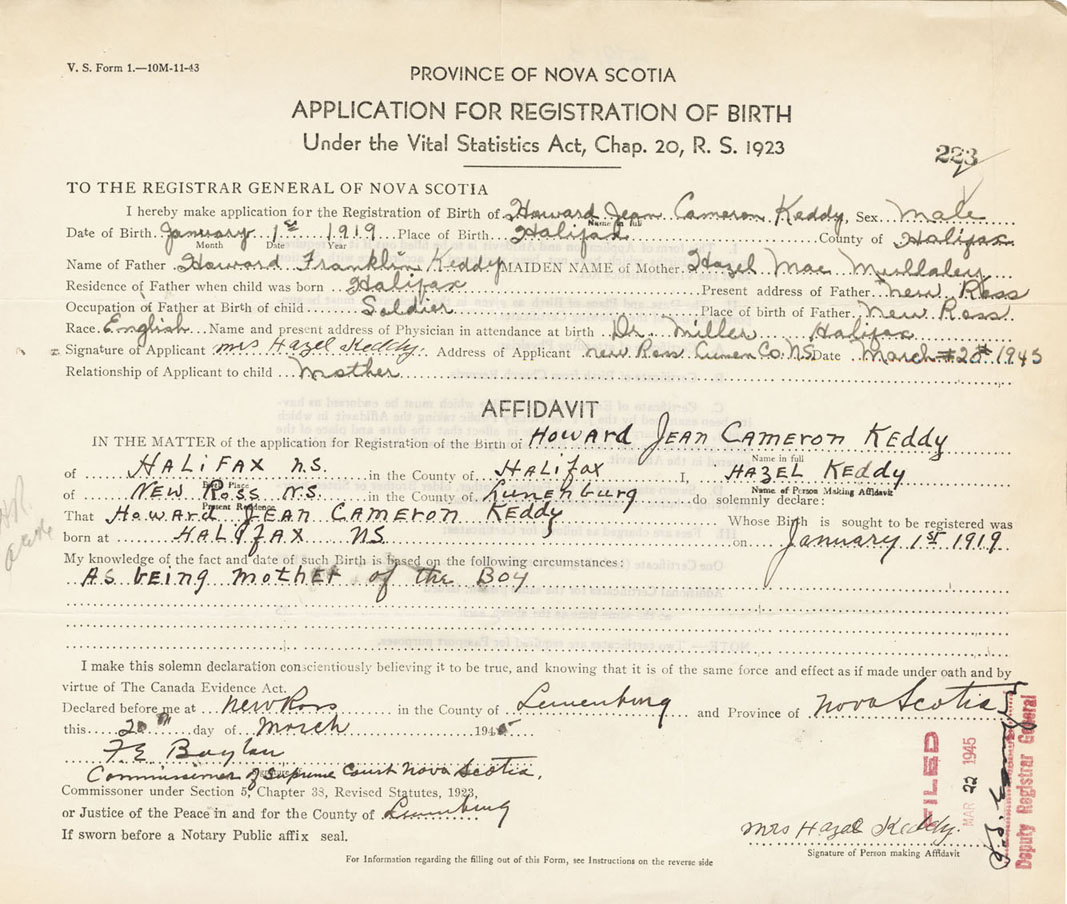 V. S. Form 1.—10M-11-43
PROVINCE OF NOVA SCOTIA
APPLICATION FOR REGISTRATION OF BIRTH
Under the Vital Statistics Act, Chap. 20, R. S. 1923
223
TO THE REGISTRAR GENERAL OF NOVA SCOTIA
I hereby make application for the Registration of Birth of Howard Jean Cameron Keddy, Sex Male
Name in full
Date of Birth January 1st 1919 Place of Birth Halifax County of Halifax
Month Date Year
Name of Father Howard Franklin Keddy MAIDEN NAME of Mother Hazel Mae Mullaley
Residence of Father when child was born Halifax Present address of Father New Ross
Occupation of Father at Birth of child Soldier Place of birth of Father New Ross
Race English Name and present address of Physician in attendance at birth Dr Miller Halifax
Signature of Applicant Mrs Hazel Keddy. Address of Applicant New Ross Lunen Co. NS Date March 20th 1945
Relationship of Applicant to child Mother
AFFIDAVIT
IN THE MATTER of the application for Registration of the Birth of Howard Jean Cameron Keddy
Name in full
of HALIFAX N.S. in the County of HALIFAX I, HAZEL KEDDY
Birth Place Name of Person Making Affidavit
of NEW ROSS N.S. in the County of Lunenburg do solemnly declare:
Present Residence
That Howard JEAN CAMERON KEDDY Whose Birth is sought to be registered was
born at HALIFAX NS. on January 1st 1919
My knowledge of the fact and date of such Birth is based on the following circumstances:
As being mother of the Boy
I make this solemn declaration conscientiously believing it to be true, and knowing that it is of the same force and effect as if made under oath and by
virtue of The Canada Evidence Act.
Declared before me at New Ross in the County of Lunenburg and Province of Nova Scotia
this 20th day of March 1945
F E Boylan
Commissioner of Supreme Court Nova Scotia,
Commissioner under Section 5, Chapter 38, Revised Statutes, 1923,
or Justice of the Peace in and for the County of Lunenburg
If sworn before a Notary Public affix seal.
Mrs Hazel Keddy.
Signature of Person making Affidavit
For Information regarding the filling out of this Form, see Instructions on the reverse side
FILED
MAR 22 1945
Deputy Registrar General